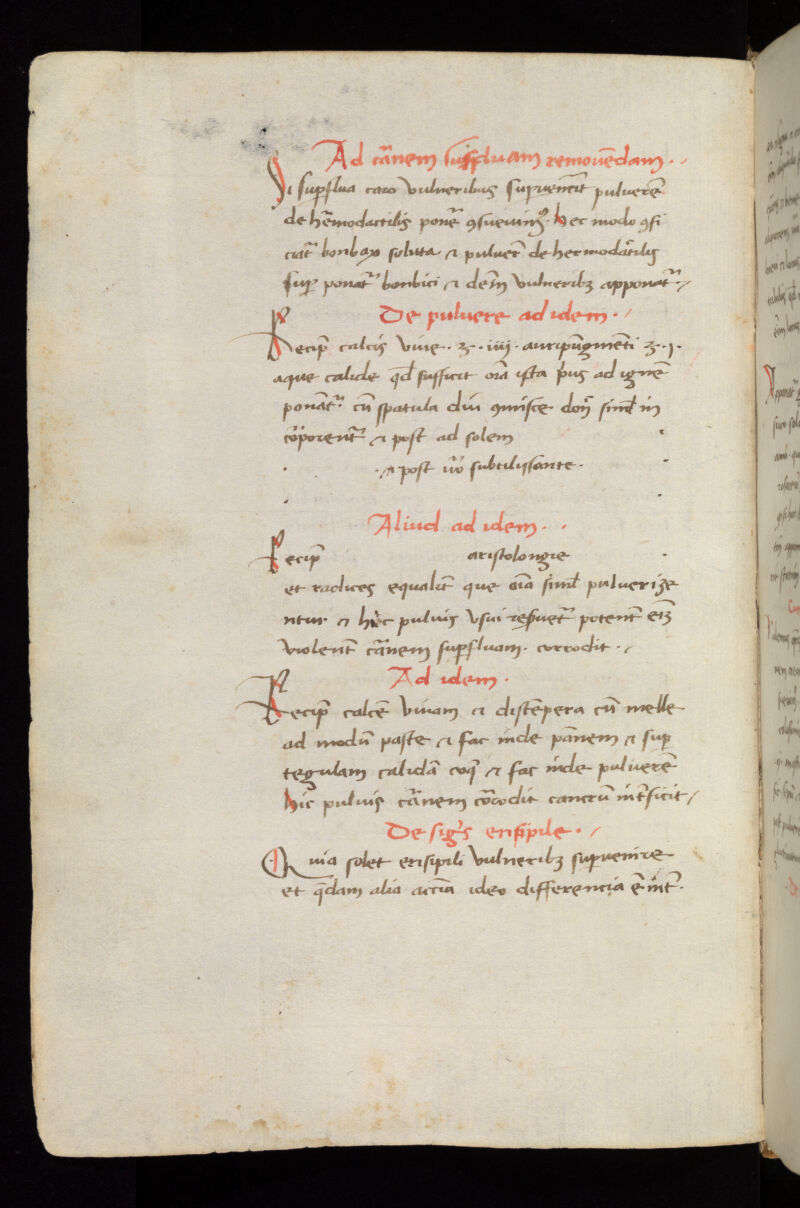 Ad carnem supfluam removendam.
Si supflua caro vulneribus supvenerit pulverem
de hermodactilis ponere hec modo
bonbax soluta et pulvere de hermodactilis
sup ponatur bonbici et vulneribz apponatur
De pulvere ad idem.
Recipe calcis vive . ʒ . iiii . auripigmenti ʒ . i .
aque calide qd sufficit oia ista prius ad ignem
ponatur cum spatula diu simul in
et post ad solem
et post vero subtilissante.
Aliud ad idem.
Recipe aristolongie
et radices equaliter que oia simul pulverize
ntur et hic pulvis usui potenter etiam
violenter carnem supfluam corrodit.
Ad idem.
Recipe calcem vivam et distempera cum melle
ad modum paste et fac inde panem et sup
tegulam calidam coque et fac inde pulverem
hic pulvis carnem corrodit cancrum interficit
De signis erisipile.
Quia solet erisipili vulneribz supvenire
et quedam alia ideo differencia est inter.